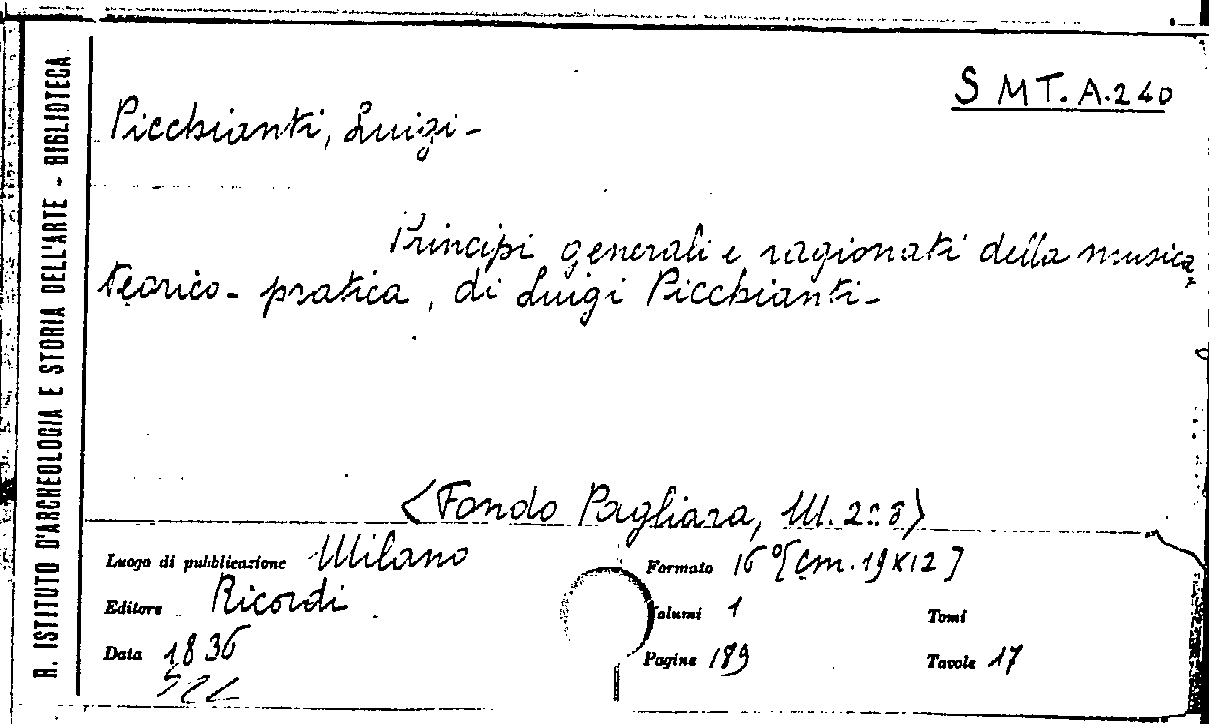 R. ISTITUTO D'ARCHEOLOGIA E STORIA DELL'ARTE - BIBLIOTECA
S MT. A.240
Picchianti, Luigi -
Principi generali e ragionati della musica
teorico - pratica, di Luigi Picchianti -
<Fondo Pagliara, III. 228>
Luogo di pubblicazione Milano
Formato 16° [cm. 19x12]
Editore Ricordi
Volumi 1 Tomi
Data 1836
Pagine 189 Tavole 17